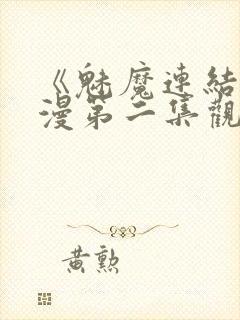 《魅魔連結
漫第二集觀
黃勲